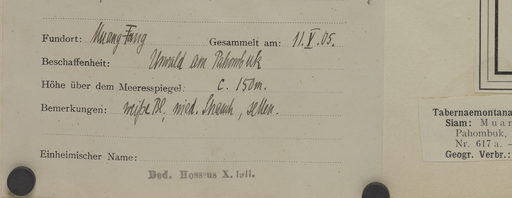 Fundort: Muang Fang Gesammelt am: 11.V.05.
Beschaffenheit: Urwald am Pahombuk
Höhe über dem Meeresspiegel: c. 150m.
Bemerkungen: weiße Bl., nied. Strauch, selten.
Einheimischer Name:
Ded. Hosseus X. 1911.
Tabernaemontana
Siam: Muan
Pahombuk,
Nr. 617a. —
Geogr. Verbr.: